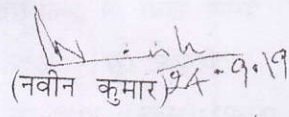 (नवीन कुमार) 24.9.19